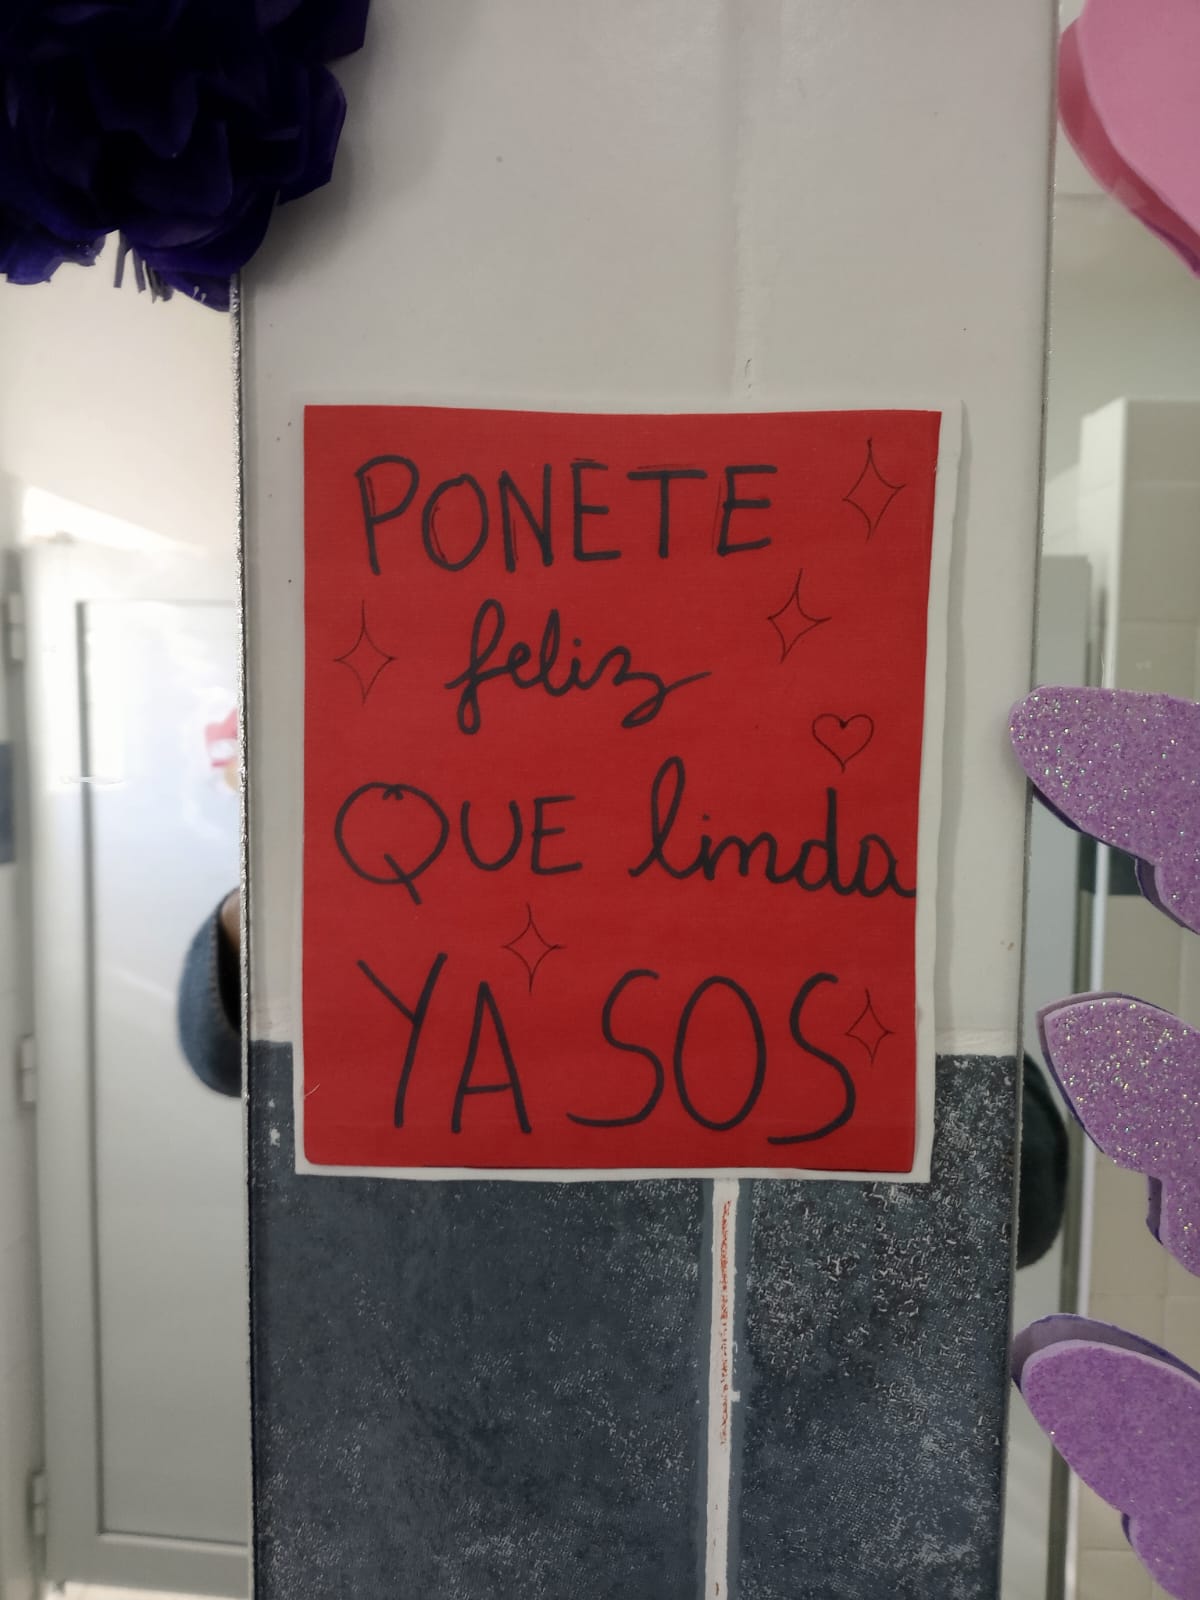 PONETE
feliz
QUE linda
YA SOS